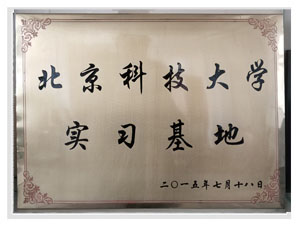 北京科技大学
实习基地
二〇一五年七月十八日